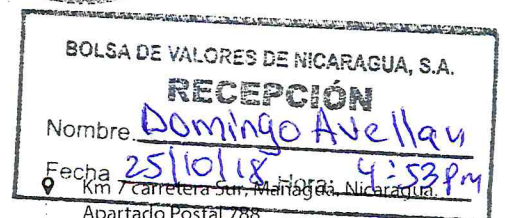 BOLSA DE VALORES DE NICARAGUA, S.A.
RECEPCIÓN
Nombre Domingo Avellan
Fecha 25/10/18 Hora: 4:53 pm
Km 7 carretera Sur, Managua, Nicaragua.
Apartado Postal 788